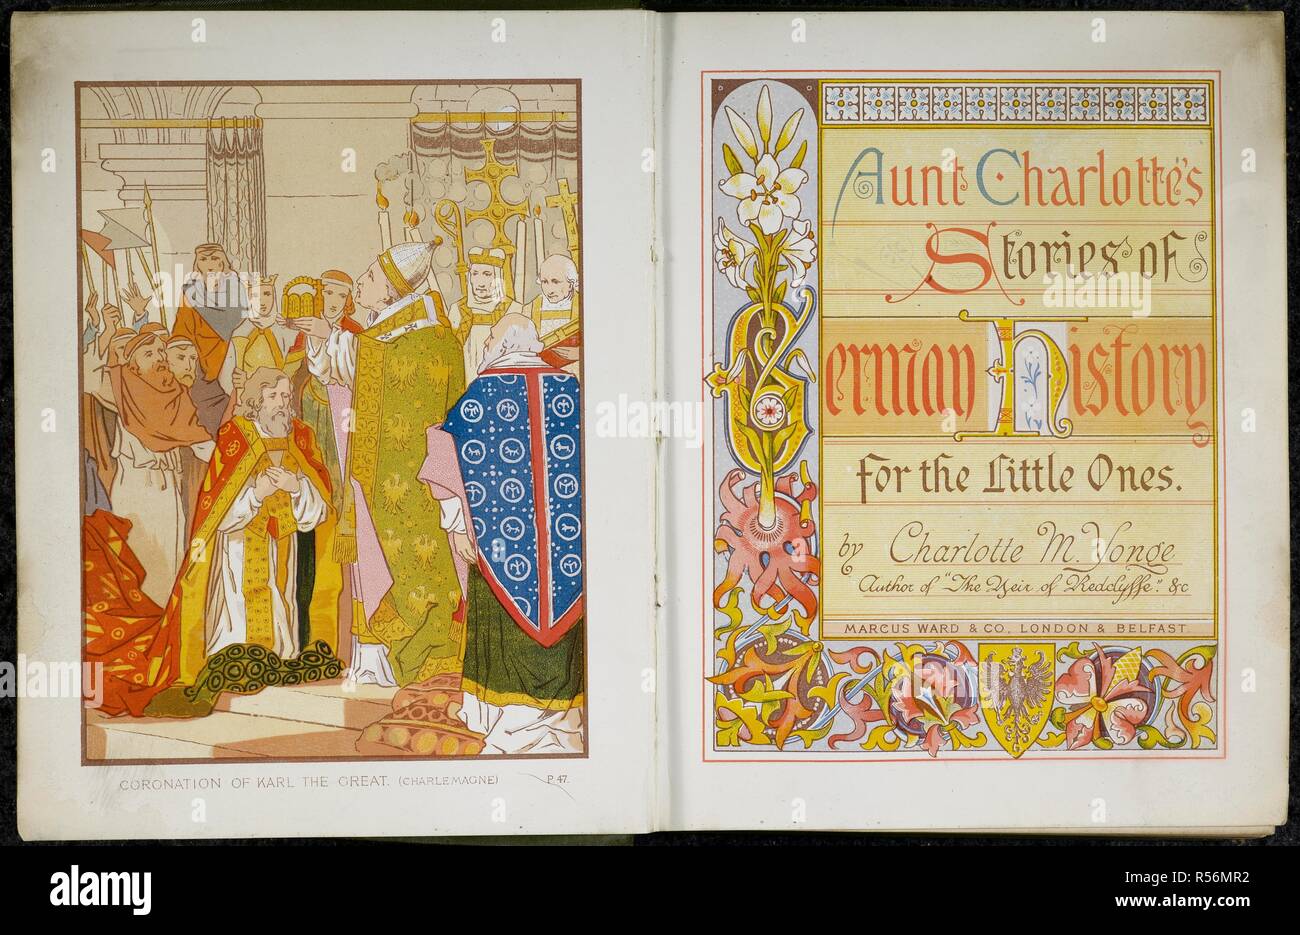 CORONATION OF KARL THE GREAT. (CHARLEMAGNE) P. 47.
Aunt Charlotte's
Stories of
German History
for the Little Ones.
by Charlotte M. Yonge
Author of "The Heir of Redclyffe." &c
MARCUS WARD & CO, LONDON & BELFAST.
a alamy stock photo
R56MR2
www.alamy.com